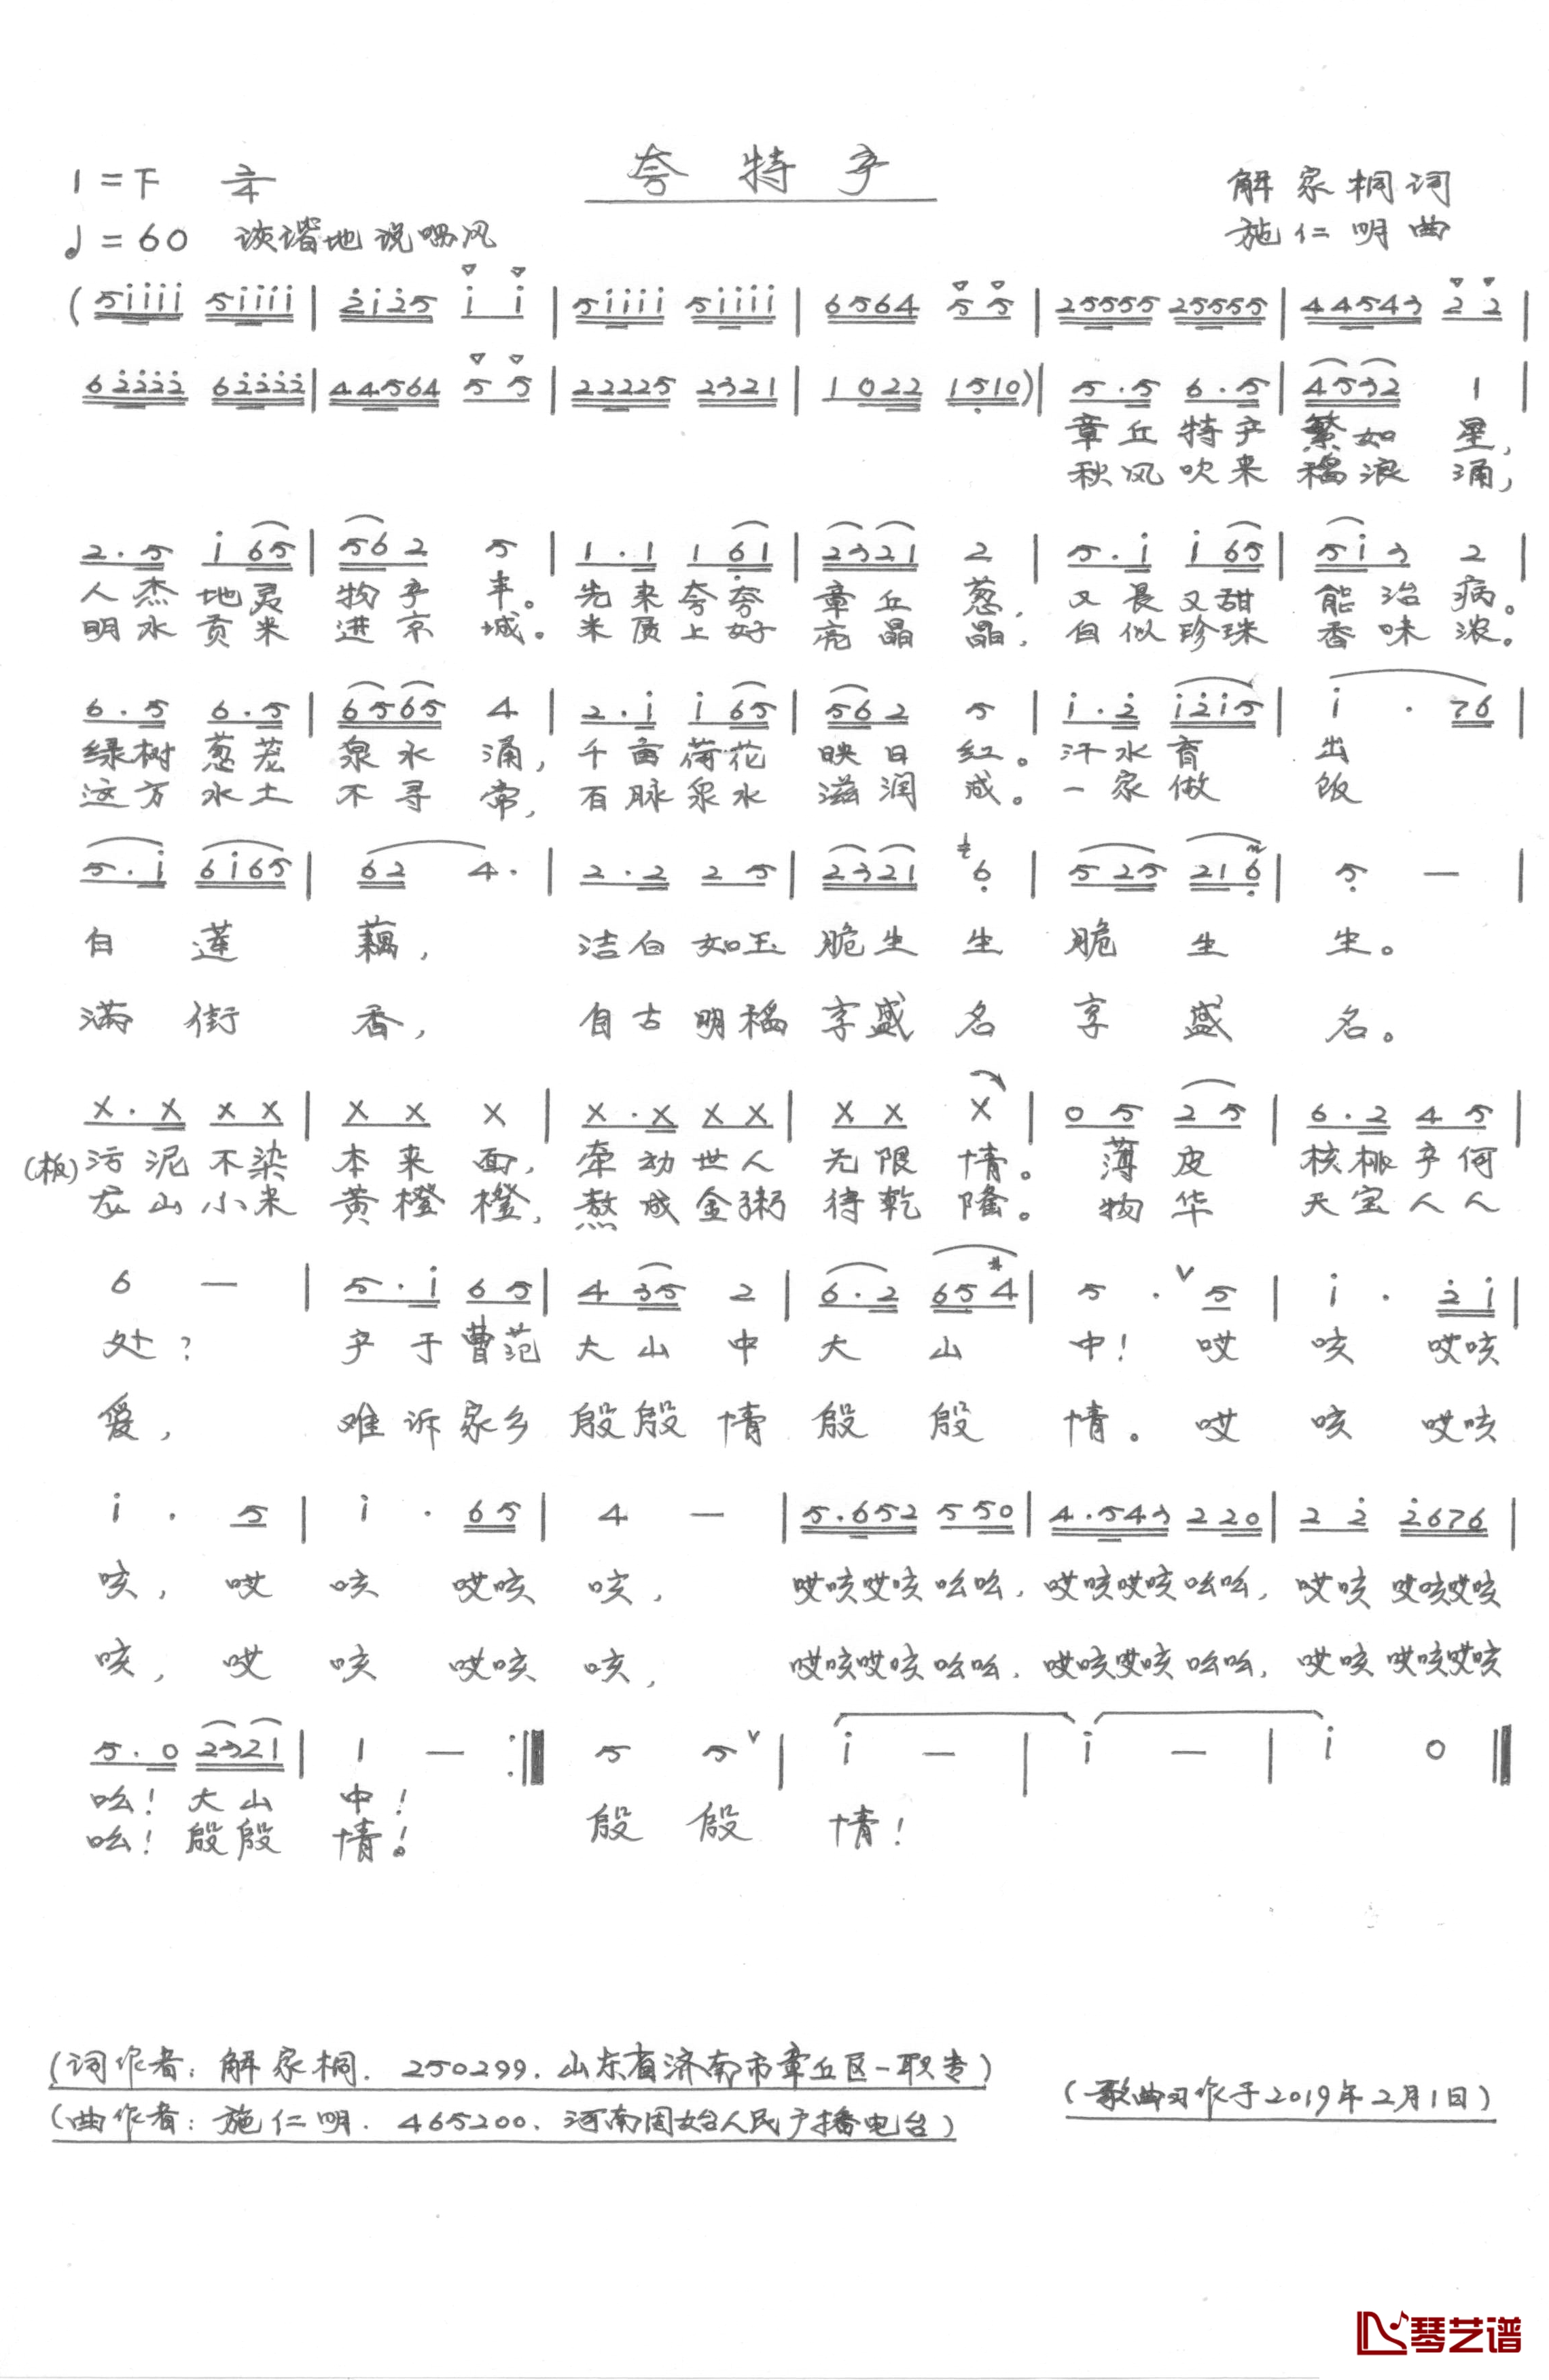 夸特产
1=F 2/4
解家桐词
♩=60 诙谐地 说唱风
施仁明曲
(5i̇i̇i̇i̇ 5i̇i̇i̇i̇ | 2̇i̇2̇5 i̇ i̇ | 5i̇i̇i̇i̇ 5i̇i̇i̇i̇ | 6564 5 5 | 25555 25555 | 44543 2̇ 2̇ |
62̇2̇2̇2̇ 62̇2̇2̇2̇ | 44564 5 5 | 22225 2321 | 1 022 15̣10) | 5.5 6.5 | 4532 1 |
章丘特产 繁如星,
秋风吹来 稻浪涌,
2.5 i̇ 65 | 562 5 | 1.1 1 6̣1 | 2321 2 | 5.i̇ i̇ 65 | 5i̇3 2 |
人杰地灵 物产丰。 先来夸夸 章丘葱, 又长又甜 能治病。
明水贡米 进京城。 米质上好 亮晶晶, 白似珍珠 香味浓。
6.5 6.5 | 6565 4 | 2.i̇ i̇ 65 | 562 5 | i̇.2̇ i̇2̇i̇5 | i̇ . 76 |
绿树葱茏 泉水涌, 千亩荷花 映日红。 汗水育 出
这方水土 不寻常, 百脉泉水 滋润成。 一家做 饭
5.i̇ 6i̇65 | 62 4. | 2.2 2 5 | 2321 ♮6̣ | 5 25 216̣ | 5̣ — |
白莲 藕, 洁白如玉 脆生生 脆生 生。
满街 香, 自古明稻 享盛名 享盛 名。
X.X X X | X X X | X.X X X | X X X | 0 5 2 5 | 6.2 4 5 |
(板) 污泥不染 本来面, 牵动世人 无限情。 薄皮 核桃产何
龙山小米 黄橙橙, 熬成金粥 待乾隆。 物华 天宝人人
6 — | 5.i̇ 6 5 | 4 35 2 | 6.2 65#4 | 5 . ∨ 5 | i̇ . 2̇ i̇ |
处? 产于曹范 大山中 大山 中! 哎 咳 哎咳
爱, 难诉家乡 殷殷情 殷殷 情。 哎 咳 哎咳
i̇ . 5 | i̇ . 65 | 4 — | 5.652 550 | 4.543 220 | 2 2̇ 2̇676 |
咳, 哎 咳 哎咳 咳, 哎咳哎咳吆吆, 哎咳哎咳吆吆, 哎咳 哎咳哎咳
咳, 哎 咳 哎咳 咳, 哎咳哎咳吆吆, 哎咳哎咳吆吆, 哎咳 哎咳哎咳
5.0 2321 | 1 — :‖ 5 5 ∨ | i̇ — | i̇ — | i̇ 0 ‖
吆! 大山 中!
吆! 殷殷 情! 殷 殷 情!
(词作者: 解家桐. 250299. 山东省济南市章丘区一职专)
(曲作者: 施仁明. 465200. 河南固始人民广播电台)
(歌曲习作于2019年2月1日)
琴艺谱